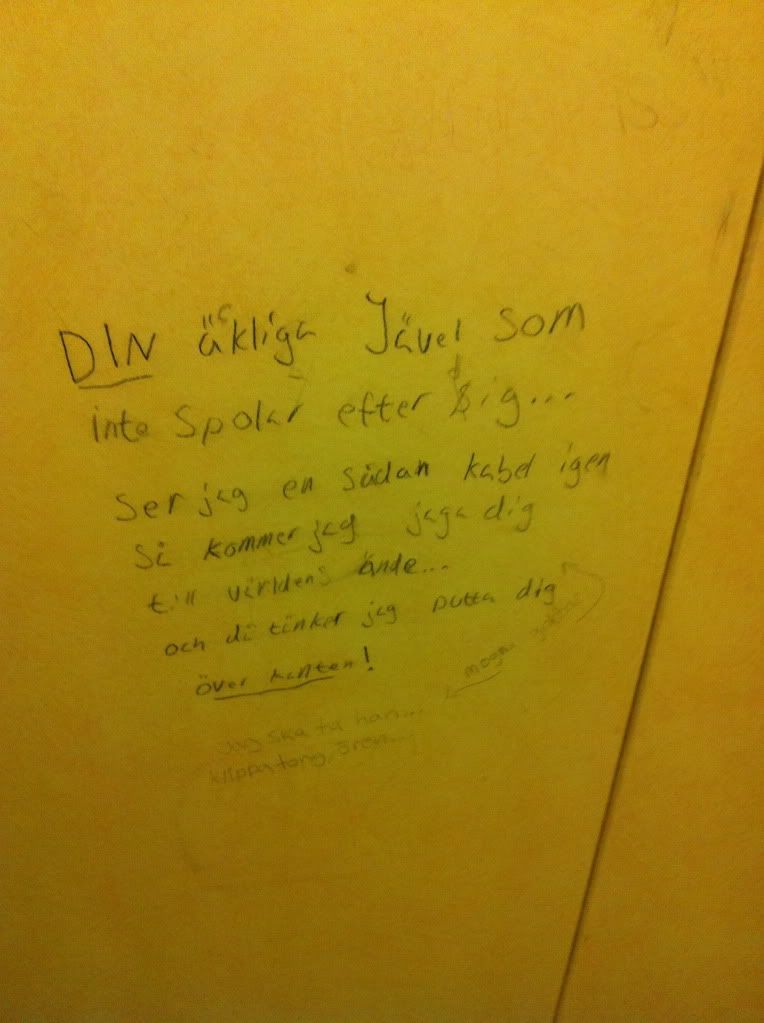 DIN äckliga Jävel som
inte spolar efter dig...
Ser jag en sådan kabel igen
så kommer jag jaga dig
till världens ände...
och då tänker jag putta dig
över kanten!
mogna
Jag ska ta han...